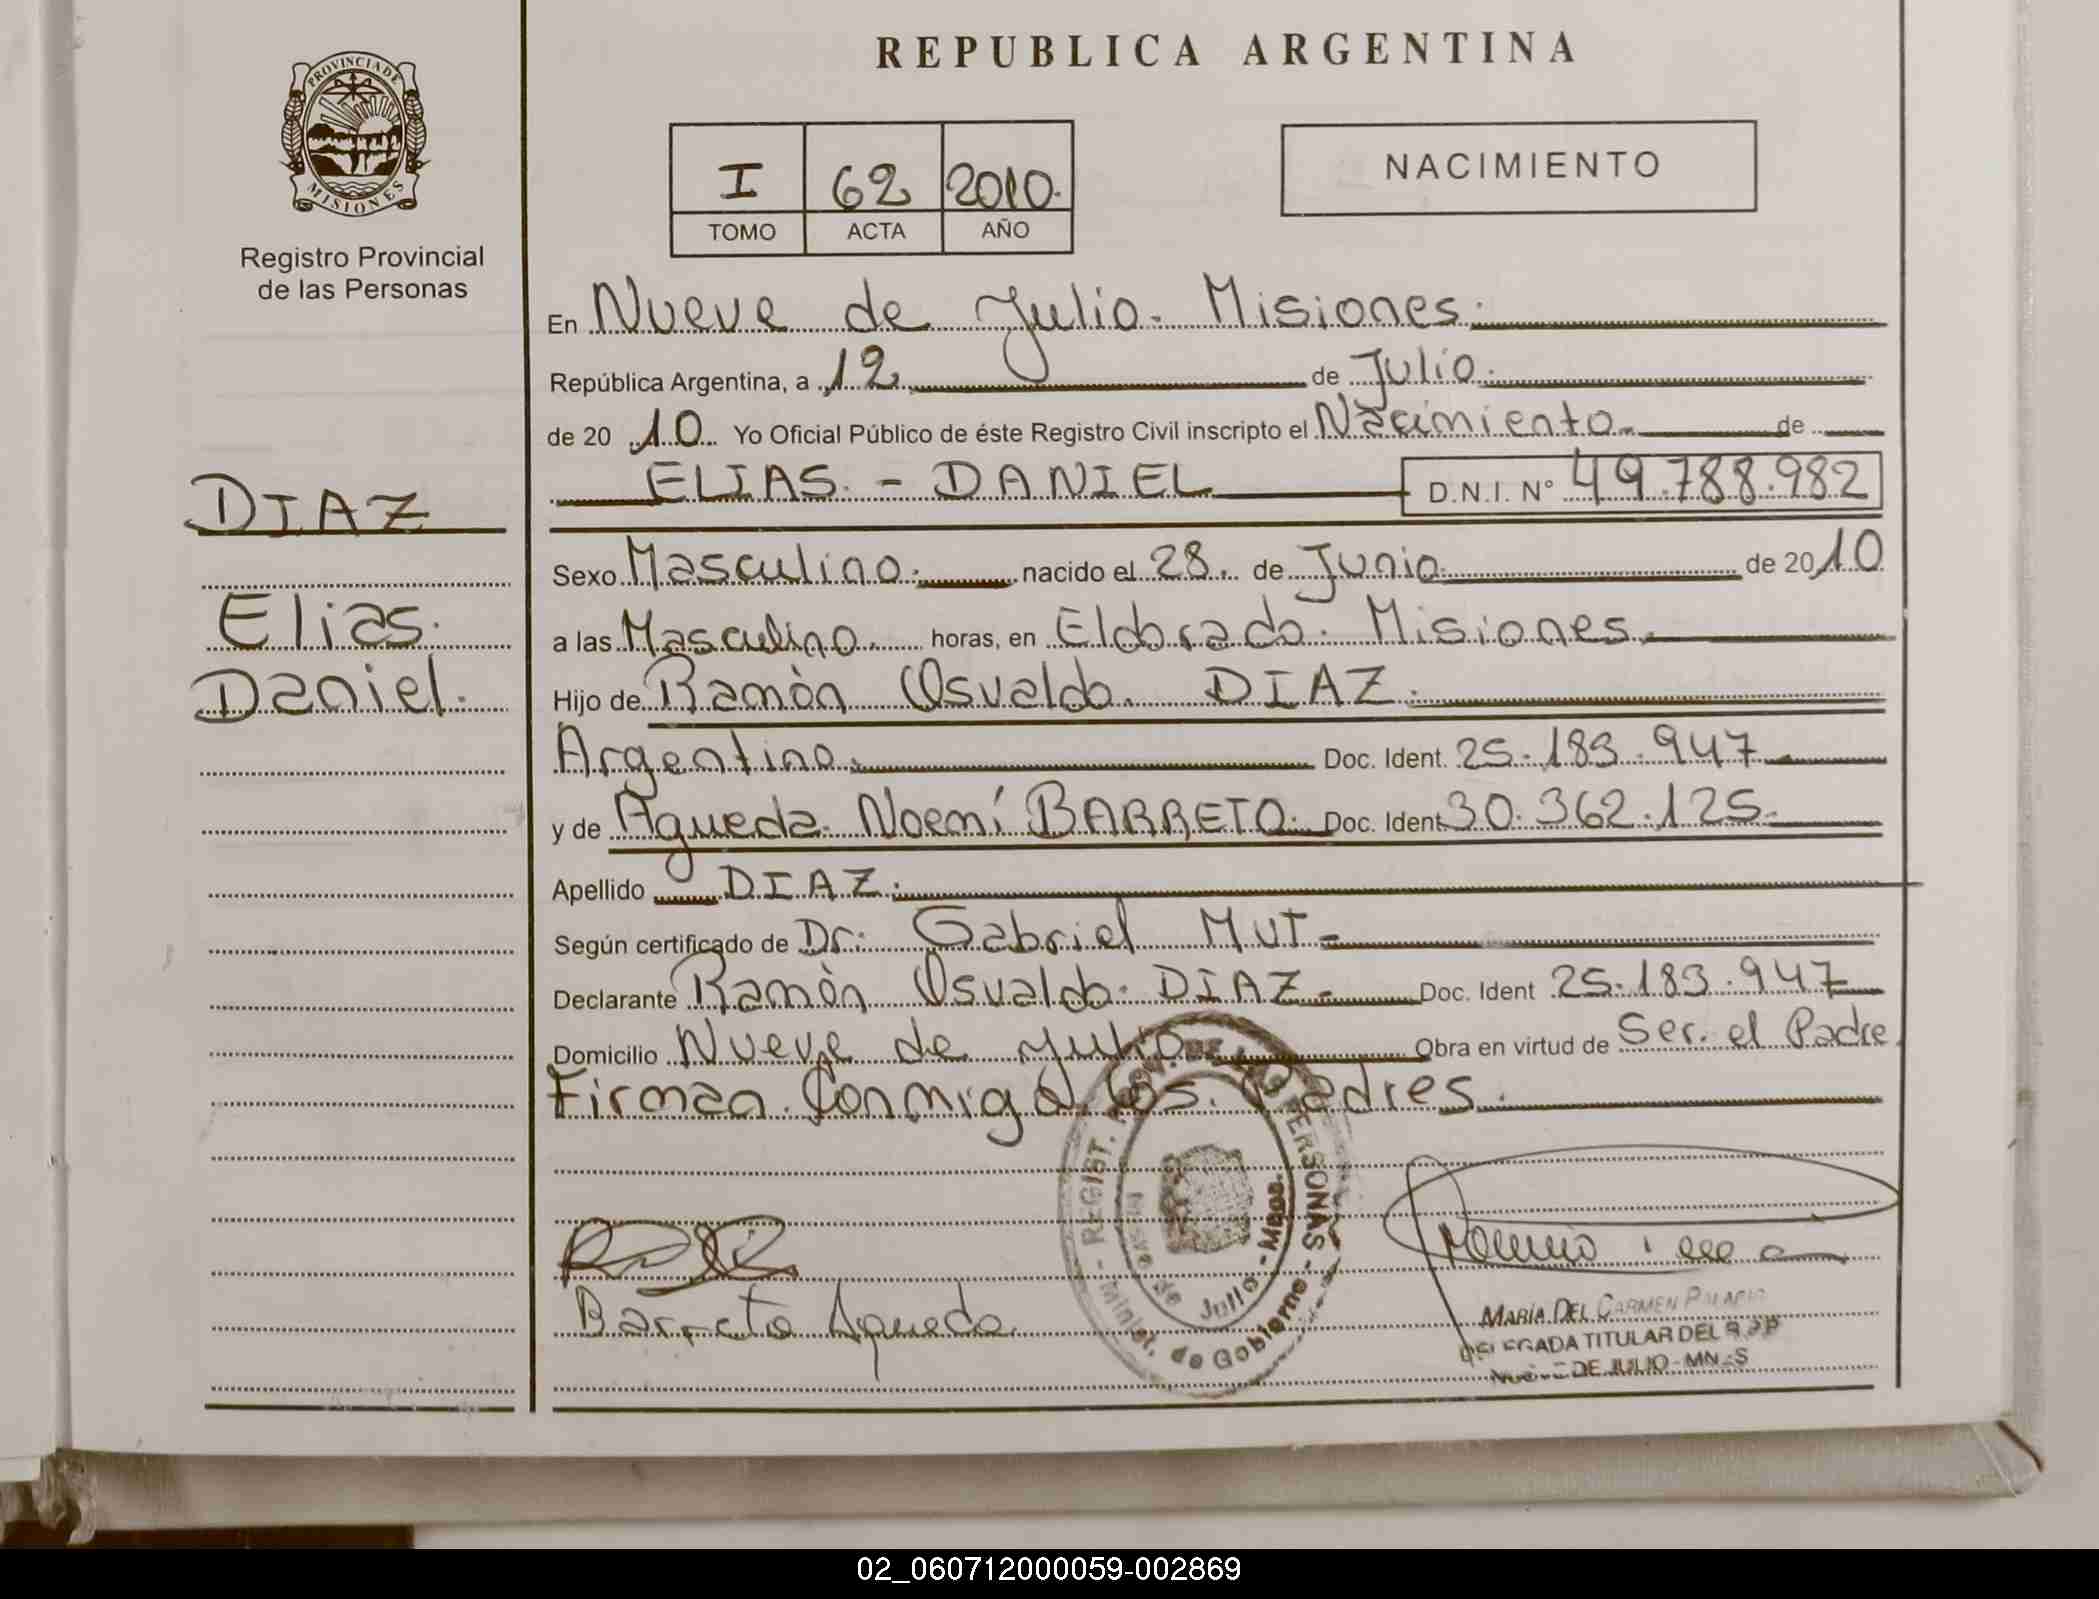 REPUBLICA ARGENTINA
PROVINCIA DE
MISIONES
Registro Provincial
de las Personas
I 62 2010.
TOMO ACTA AÑO
NACIMIENTO
En Nueve de Julio. Misiones.
República Argentina, a 12 de Julio.
de 20 10 Yo Oficial Público de éste Registro Civil inscripto el Nacimiento. de
ELIAS. - DANIEL D.N.I. N° 49.788.982
DIAZ
Elias.
Daniel.
Sexo Masculino. nacido el 28. de Junio. de 20 10
a las Masculino. horas, en Eldorado. Misiones.
Hijo de Ramòn Osvaldo. DIAZ.
Argentino. Doc. Ident. 25.183.947
y de Agueda. Noemí BARRETO. Doc. Ident 30.362.125.
Apellido DIAZ.
Según certificado de Dr. Gabriel MUT-
Declarante Ramòn Osvaldo. DIAZ- Doc. Ident 25.183.947
Domicilio Nueve de Julio Obra en virtud de Ser. el Padre
Firman Conmigo los. Padres.
REGIST. PROV. DE LAS PERSONAS - Minist. de Gobierno -
Nueve de Julio - Mnes.
Barreto Agueda
MARÍA DEL CARMEN PALACIO
DELEGADA TITULAR DEL R.P.P
NUEVE DE JULIO - MNES
02_060712000059-002869